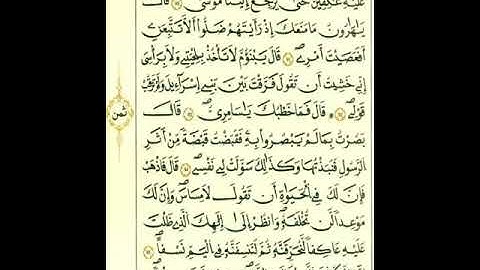 عَلَيْهِ عَٰكِفِينَ حَتَّىٰ يَرْجِعَ إِلَيْنَا مُوسَىٰ قَالَ
يَٰهَٰرُونُ مَا مَنَعَكَ إِذْ رَأَيْتَهُمْ ضَلُّوٓا۟ أَلَّا تَتَّبِعَنِ
أَفَعَصَيْتَ أَمْرِى قَالَ يَبْنَؤُمَّ لَا تَأْخُذْ بِلِحْيَتِى وَلَا بِرَأْسِىَ
إِنِّى خَشِيتُ أَن تَقُولَ فَرَّقْتَ بَيْنَ بَنِىٓ إِسْرَآءِيلَ وَلَمْ تَرْقُبْ
قَوْلِى قَالَ فَمَا خَطْبُكَ يَٰسَٰمِرِىُّ قَالَ
بَصُرْتُ بِمَا لَمْ يَبْصُرُوا۟ بِهِۦ فَقَبَضْتُ قَبْضَةً مِّنْ أَثَرِ
ٱلرَّسُولِ فَنَبَذْتُهَا وَكَذَٰلِكَ سَوَّلَتْ لِى نَفْسِى قَالَ فَٱذْهَبْ
فَإِنَّ لَكَ فِى ٱلْحَيَوٰةِ أَن تَقُولَ لَا مِسَاسَ وَإِنَّ لَكَ
مَوْعِدًا لَّن تُخْلَفَهُۥ وَٱنظُرْ إِلَىٰٓ إِلَٰهِكَ ٱلَّذِى ظَلْتَ
عَلَيْهِ عَاكِفًا لَّنُحَرِّقَنَّهُۥ ثُمَّ لَنَنسِفَنَّهُۥ فِى ٱلْيَمِّ نَسْفًا
ثمن